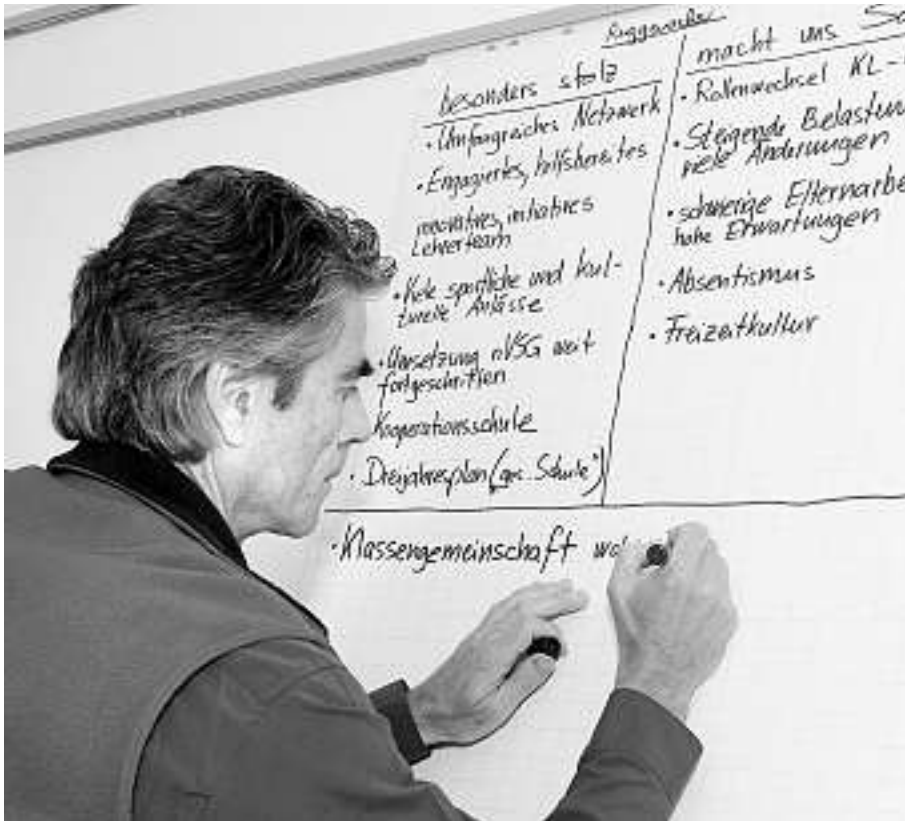 besonders stolz
• Umfangreiches Netzwerk
• Engagiertes, hilfsbereites
innovatives, initiatives
Lehrerteam
• Viele sportliche und kul-
turelle Anlässe
• Umsetzung nVSG weit
fortgeschritten
Kooperationsschule
• Dreijahresplan („ges. Schule“)
macht uns
• Rollenwechsel KL-
• Steigende Belastun
viele Änderungen
• schwierige Elternarbe
hohe Erwartungen
• Absentismus
• Freizeitkultur
• Klassengemeinschaft